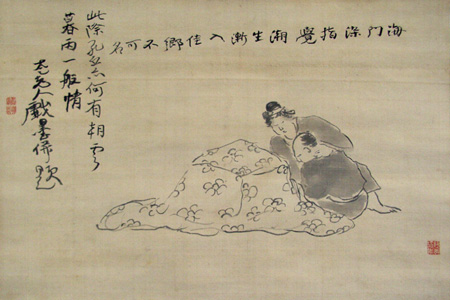 海门深指覺潮生漸入佳鄉不可名
此際孔何有朝雲
暮雨一般情
老人戲墨併題